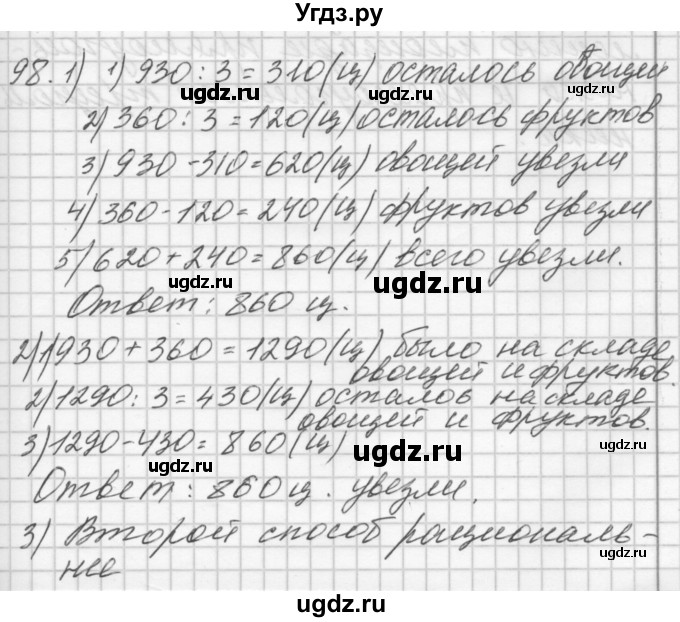 Угдз.ру
98. 1) 1) 930 : 3 = 310 (ц) осталось овощей
ugdz.ru ugdz.ru ugdz.ru
2) 360 : 3 = 120 (ц) осталось фруктов
3) 930 - 310 = 620 (ц) овощей увезли
4) 360 - 120 = 240 (ц) фруктов увезли
5) 620 + 240 = 860 (ц) всего увезли.
ugdz.ru ugdz.ru ugdz.ru
Ответ: 860 ц.
2) 1) 930 + 360 = 1290 (ц) было на складе
овощей и фруктов.
ugdz.ru
2) 1290 : 3 = 430 (ц) осталось на складе
овощей и фруктов.
3) 1290 - 430 = 860 (ц)
ugdz.ru ugdz.ru ugdz.ru
Ответ: 860 ц. увезли.
3) Второй способ рациональ-
нее
ugdz.ru
ugdz.ru